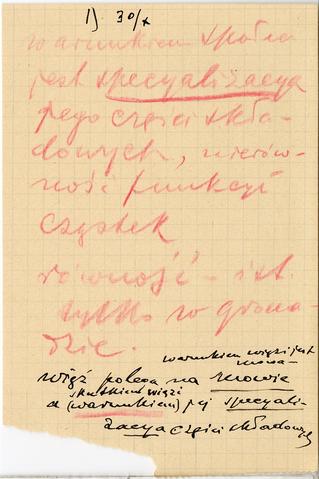 1) 30/x
warunkiem społe
jest specyalizacya
jego części skła-
dowych, nierów-
ność funkcyi
cząstek
równość – ist.
tylko w groma-
dzie.
warunkiem więzi jest
mowa
więź polega na mowie
skutkiem więzi
a (warunkiem) jej specyali-
zacya części składowych